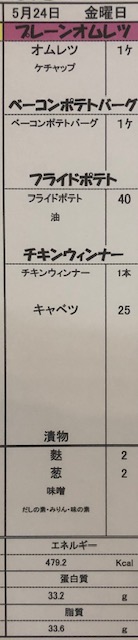 5月24日　金曜日
プレーンオムレツ
オムレツ　1ケ
ケチャップ
ベーコンポテトバーグ
ベーコンポテトバーグ　1ケ
フライドポテト
フライドポテト　40
油
チキンウィンナー
チキンウィンナー　1本
キャベツ　25
漬物
麩　2
葱　2
味噌
だしの素・みりん・味の素
エネルギー
479.2　Kcal
蛋白質
33.2　g
脂質
33.6　g